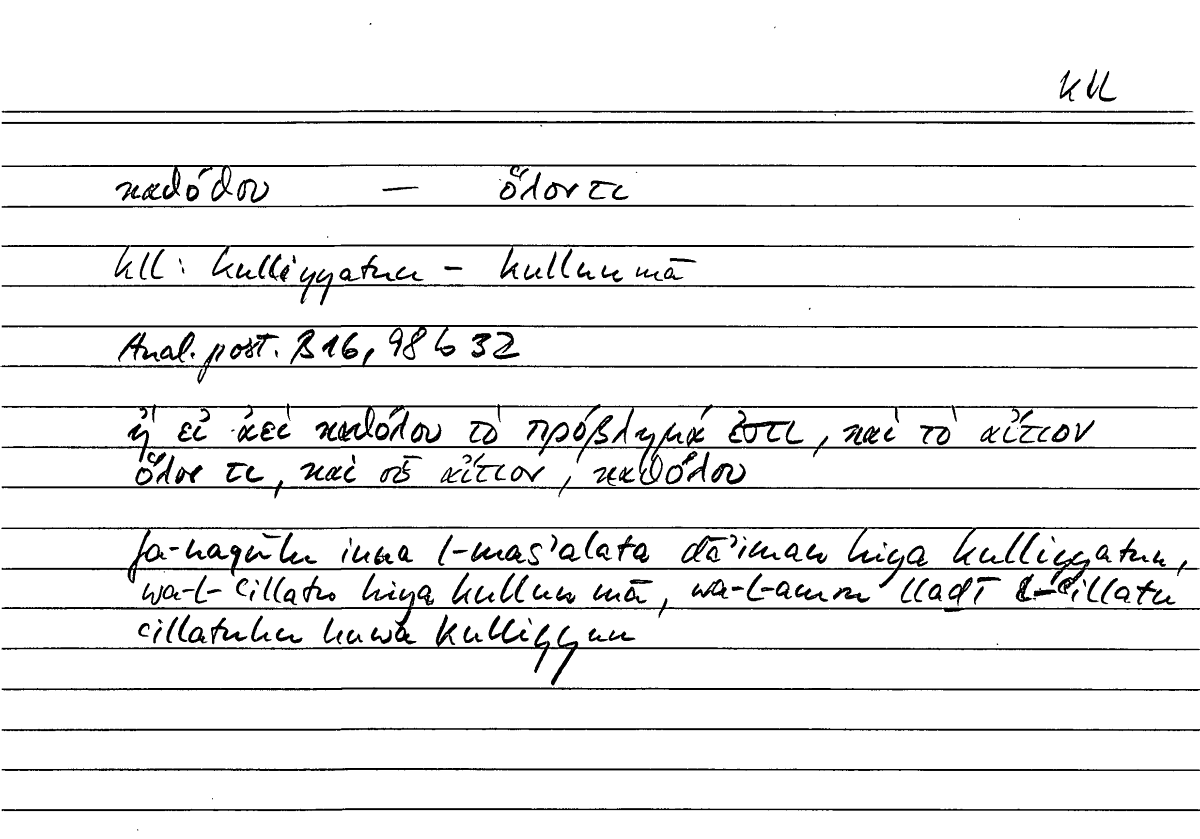 kll
καθόλου — ὅλον τι
kll: kulliyyatun – kullun mā
Anal. post. B 16, 98 b 32
ἢ εἰ ἀεὶ καθόλου τὸ πρόβλημά ἐστι, καὶ τὸ αἴτιον
ὅλον τι, καὶ οὗ αἴτιον, καθόλου
fa-naqūlu inna l-masʾalata dāʾiman hiya kulliyyatun,
wa-l-ʿillatu hiya kullun mā, wa-l-amru lladī l-ʿillatu
ʿillatuhu huwa kulliyyun